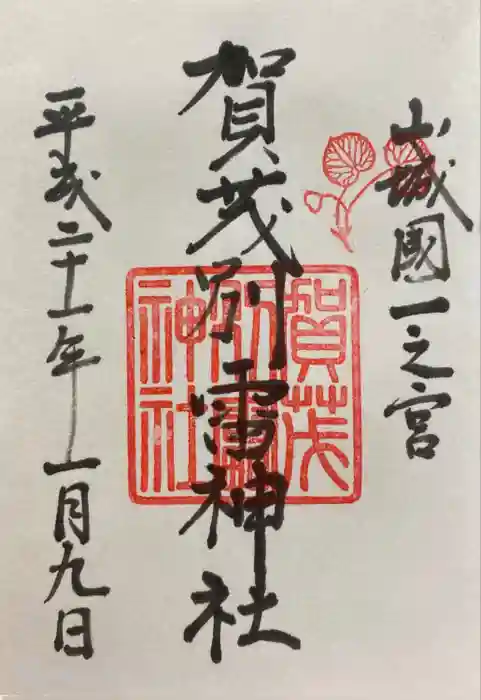 山城國一之宮
賀茂別雷神社
賀茂
別雷
神社
平成二十一年一月九日